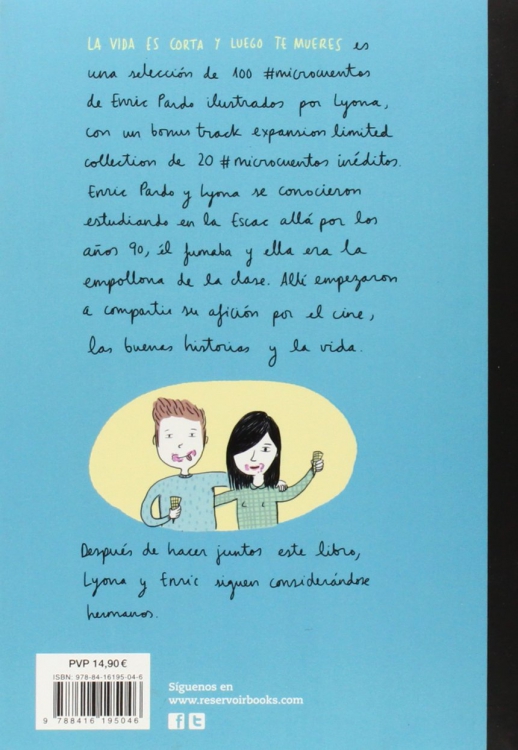 LA VIDA ES CORTA Y LUEGO TE MUERES es
una selección de 100 #microcuentos
de Enric Pardo ilustrados por Lyona,
con un bonus track expansion limited
collection de 20 #microcuentos inéditos.
Enric Pardo y Lyona se conocieron
estudiando en la Escac allá por los
años 90, él fumaba y ella era la
empollona de la clase. Allí empezaron
a compartir su afición por el cine,
las buenas historias y la vida.
Después de hacer juntos este libro,
Lyona y Enric siguen considerándose
hermanos.
PVP 14,90 €
ISBN: 978-84-16195-04-6
9 788416 195046
Síguenos en
www.reservoirbooks.com